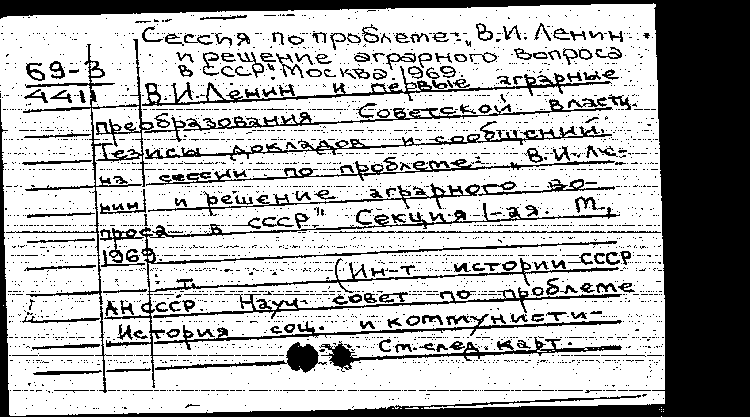 Сессия по проблеме: „В.И. Ленин
и решение аграрного вопроса
в СССР". Москва. 1969.
69-3
4411
В.И. Ленин и первые аграрные
преобразования Советской власти.
Тезисы докладов и сообщений
на сессии по проблеме: „В.И. Ле-
нин и решение аграрного во-
проса в СССР". Секция 1-ая. М.,
1969
(Ин-т истории СССР
АН СССР. Науч. совет по проблеме
История соц. и коммунисти-
См. след. карт.